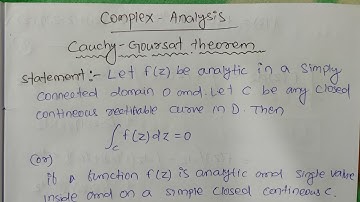 Complex - Analysis
Cauchy-Goursat theorem
Statement:- Let f(z) be analytic in a simply
connected domain D and. Let C be any closed
continuous rectifiable curve in D. Then
∫c f(z) dz = 0
(or)
if a function f(z) is analytic and single value
inside and on a simple closed continous c.